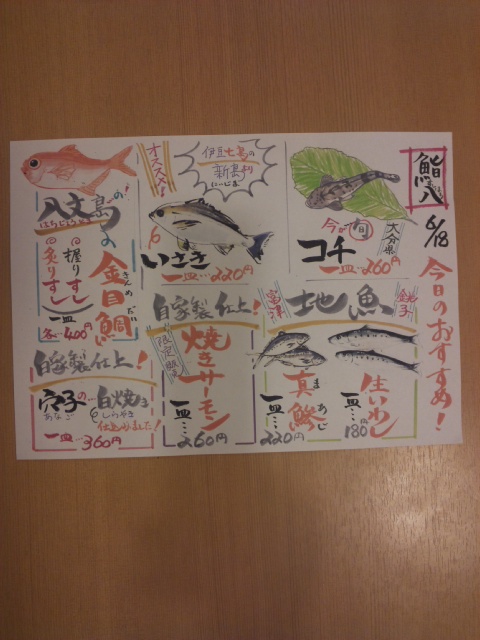 鮨八
6/18
今日のおすすめ！
大分県
今が旬
コチ
一皿…260円
オススメ！
伊豆七島の
新島より
にいじま
いさき
一皿…220円
八丈島の！
はちじょうじま
金目鯛
きんめだい
握りすし
炙りすし
一皿
各…400円
地魚
銚子
富津
生いわし
一皿…180円
真鯵
まあじ
一皿…220円
自家製仕上！
限定
焼きサーモン
一皿…260円
自家製仕上！
穴子の…
あなご
白焼き
しらやき
仕込みました！
一皿…360円